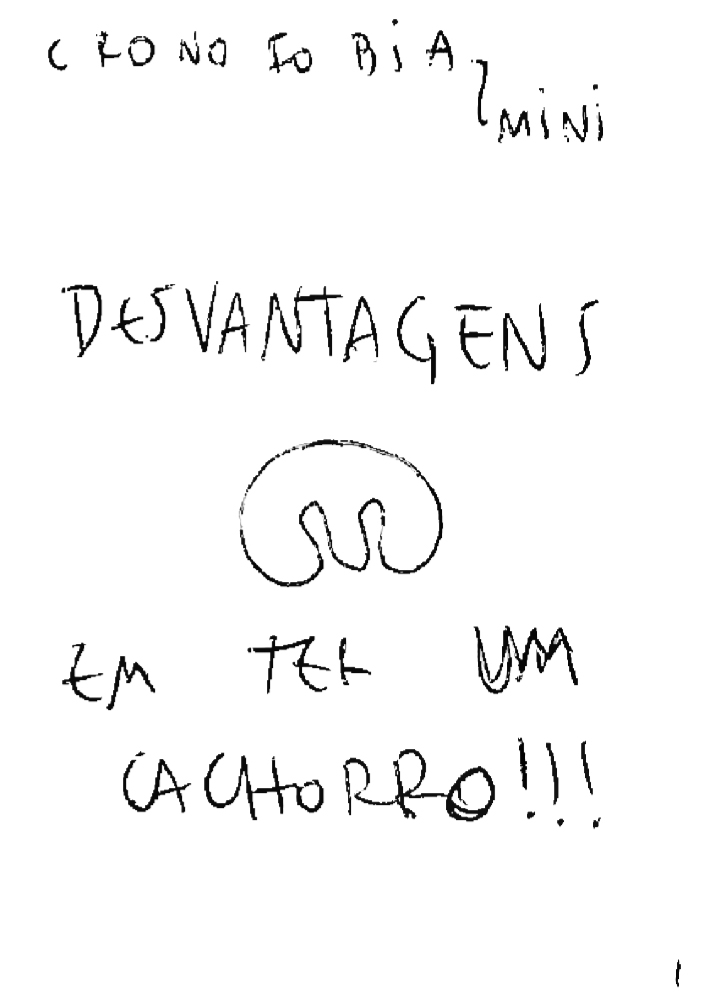 CRONOFOBiA
MiNi
DESVANTAGENS
EM TER UM
CACHORRO!!!
1